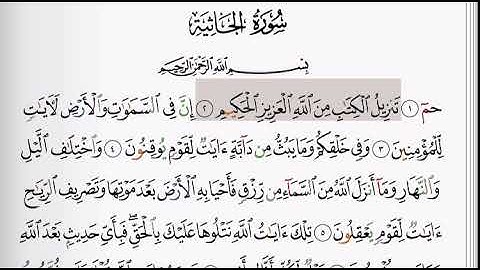 سُورَةُ الجَاثِيَةِ
بِسْمِ ٱللَّهِ ٱلرَّحْمَٰنِ ٱلرَّحِيمِ
حمٓ ١ تَنزِيلُ ٱلْكِتَٰبِ مِنَ ٱللَّهِ ٱلْعَزِيزِ ٱلْحَكِيمِ ٢ إِنَّ فِى ٱلسَّمَٰوَٰتِ وَٱلْأَرْضِ لَءَايَٰتٍ
لِّلْمُؤْمِنِينَ ٣ وَفِى خَلْقِكُمْ وَمَا يَبُثُّ مِن دَآبَّةٍ ءَايَٰتٌ لِّقَوْمٍ يُوقِنُونَ ٤ وَٱخْتِلَٰفِ ٱلَّيْلِ
وَٱلنَّهَارِ وَمَآ أَنزَلَ ٱللَّهُ مِنَ ٱلسَّمَآءِ مِن رِّزْقٍ فَأَحْيَا بِهِ ٱلْأَرْضَ بَعْدَ مَوْتِهَا وَتَصْرِيفِ ٱلرِّيَٰحِ
ءَايَٰتٌ لِّقَوْمٍ يَعْقِلُونَ ٥ تِلْكَ ءَايَٰتُ ٱللَّهِ نَتْلُوهَا عَلَيْكَ بِٱلْحَقِّ ۖ فَبِأَىِّ حَدِيثٍۭ بَعْدَ ٱللَّهِ